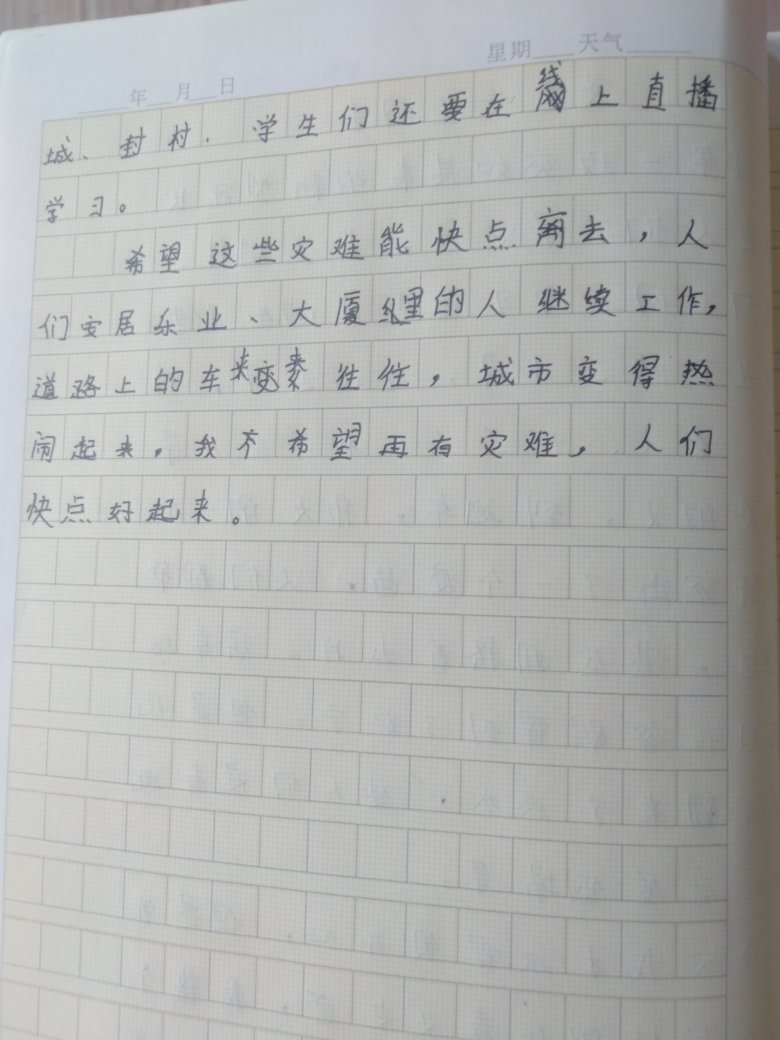 星期 天气
年 月 日
城、封村、学生们还要在线上直播
学习。
希望这些灾难能快点离去，人
们安居乐业、大厦里的人继续工作，
道路上的车来来往往，城市变得热
闹起来，我不希望再有灾难，人们
快点好起来。